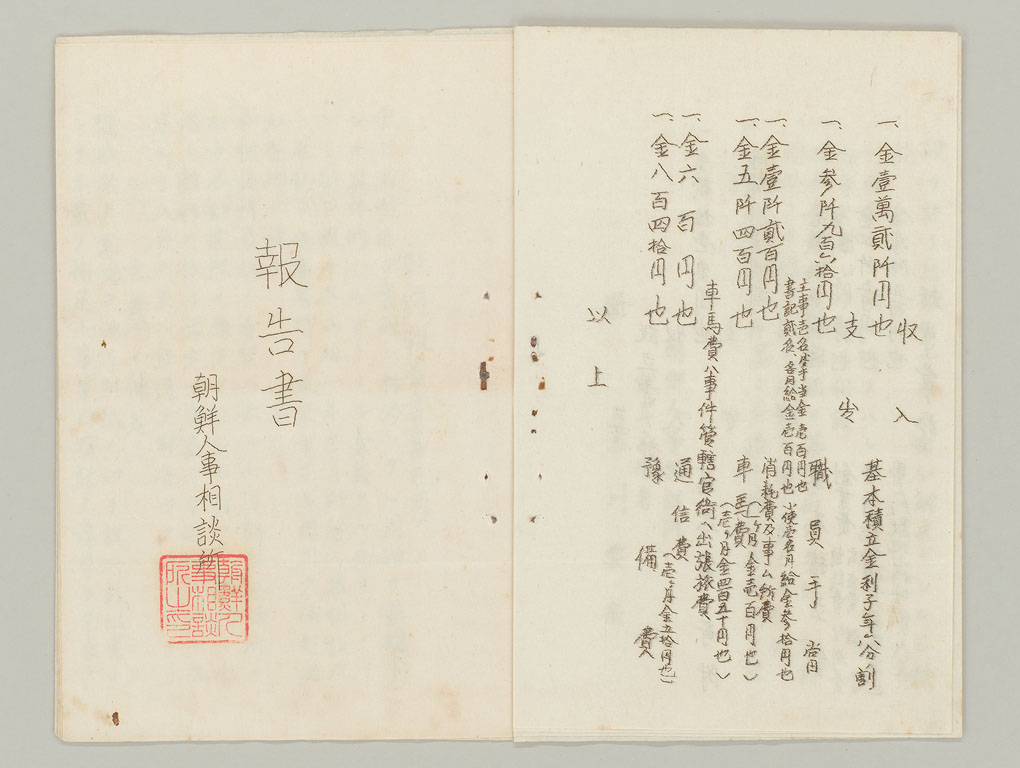 収入
一、金壹萬貳阡円也 基本積立金利子年八分割
支出
一、金参阡九百六拾円也 職員手当
主事壱名 手当金壱百円也
書記貳名、各月給金壱百円也 小使壱名月給金参拾円也
一、金壹阡貳百円也 消耗費及事ム所費
(一ヶ月金壱百円也)
一、金五阡四百円也 車馬費
(壱ヶ月金四百五十円也)
車馬費ハ事件管轄官衙ヘ出張旅費
一、金六百円也 通信費
(壱ヶ月金五拾円也)
一、金八百四拾円也 豫備費
以上
報告書
朝鮮人事相談部